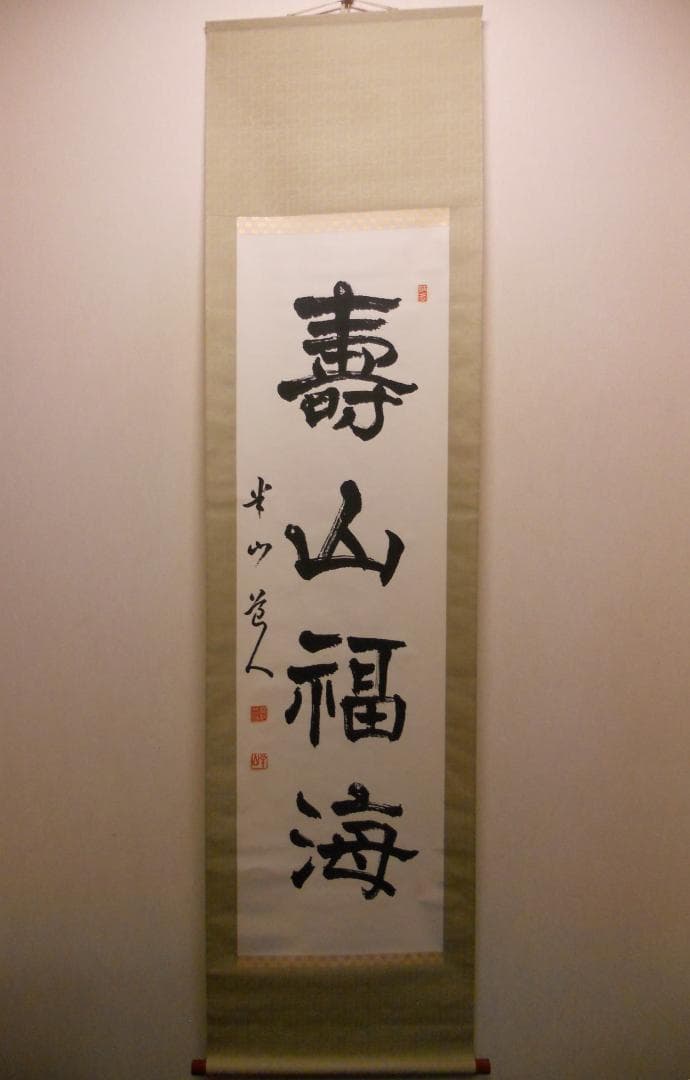 壽山福海
半山道人